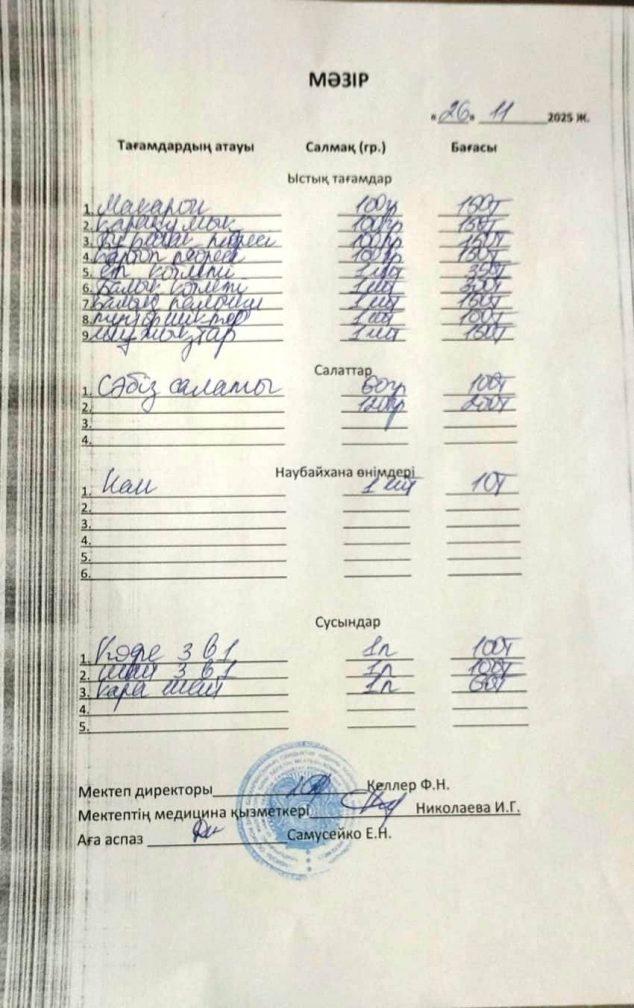 МӘЗІР
«26» 11 2025 ж.
Тағамдардың атауы Салмақ (гр.) Бағасы
Ыстық тағамдар
1. Макарон 100гр 150т
2. Қарақұмық 100гр 150т
3. Бұршақ пюреси 100гр 150т
4. Картоп пюреси 100гр 150т
5. ет котлеті 1 шт 350т
6. Балық котлеті 1 шт 300т
7. Балық палочки 1 шт 150т
8. 1 шт 100т
9. 1 шт 150т
Салаттар
1. Сәбіз салаты 60гр 100т
2. 120гр 200т
3.
4.
Наубайхана өнімдері
1. Нан 1 шт 10т
2.
3.
4.
5.
6.
Сусындар
1. Кофе 3 в 1 1п 100т
2. Шай 3 в 1 1п 100т
3. Қара шай 1п 60т
4.
5.
Мектеп директоры Келлер Ф.Н.
Мектептің медицина қызметкері Николаева И.Г.
Аға аспаз Самусейко Е.Н.